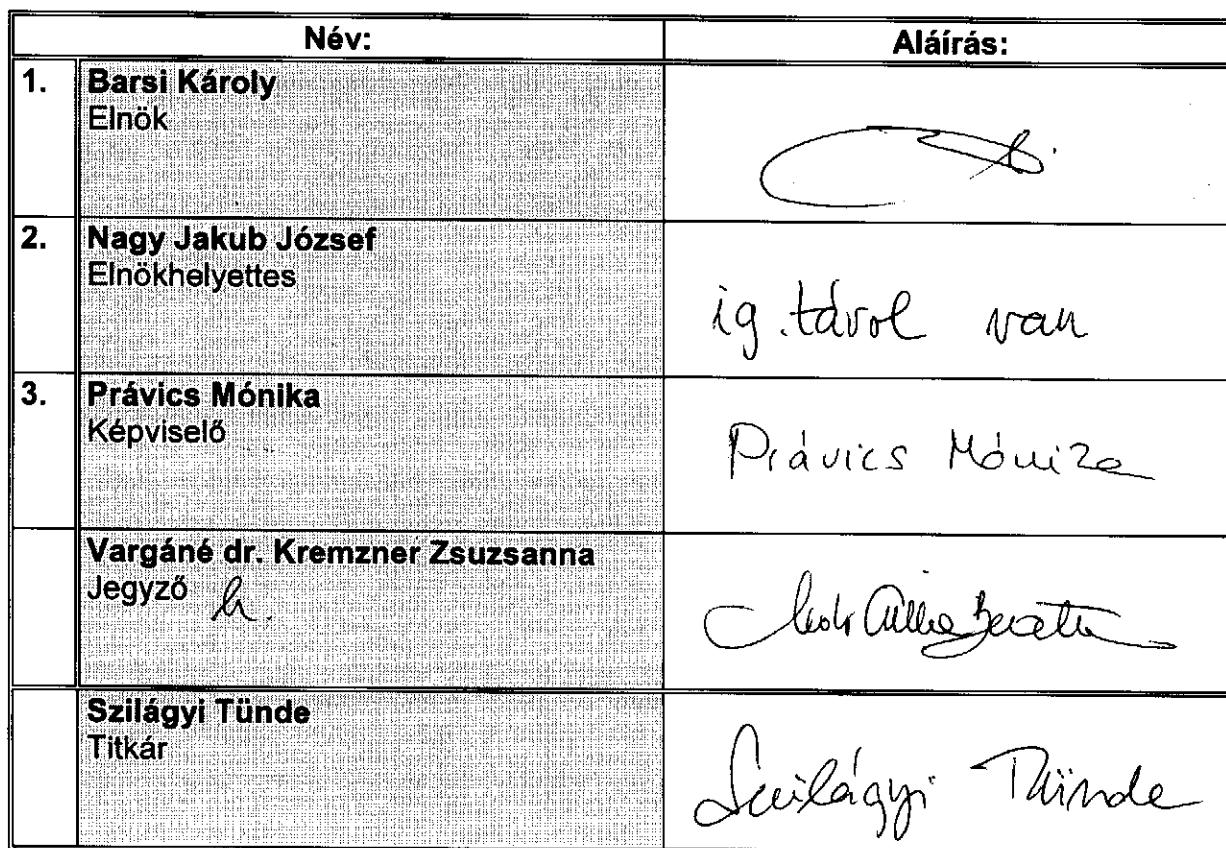 Név: Aláírás:
1. Barsi Károly
Elnök
2. Nagy Jakub József
Elnökhelyettes
ig. távol van
3. Právics Mónika
Képviselő
Právics Mónika
Vargáné dr. Kremzner Zsuzsanna
Jegyző h.
Szilágyi Tünde
Titkár
Szilágyi Tünde